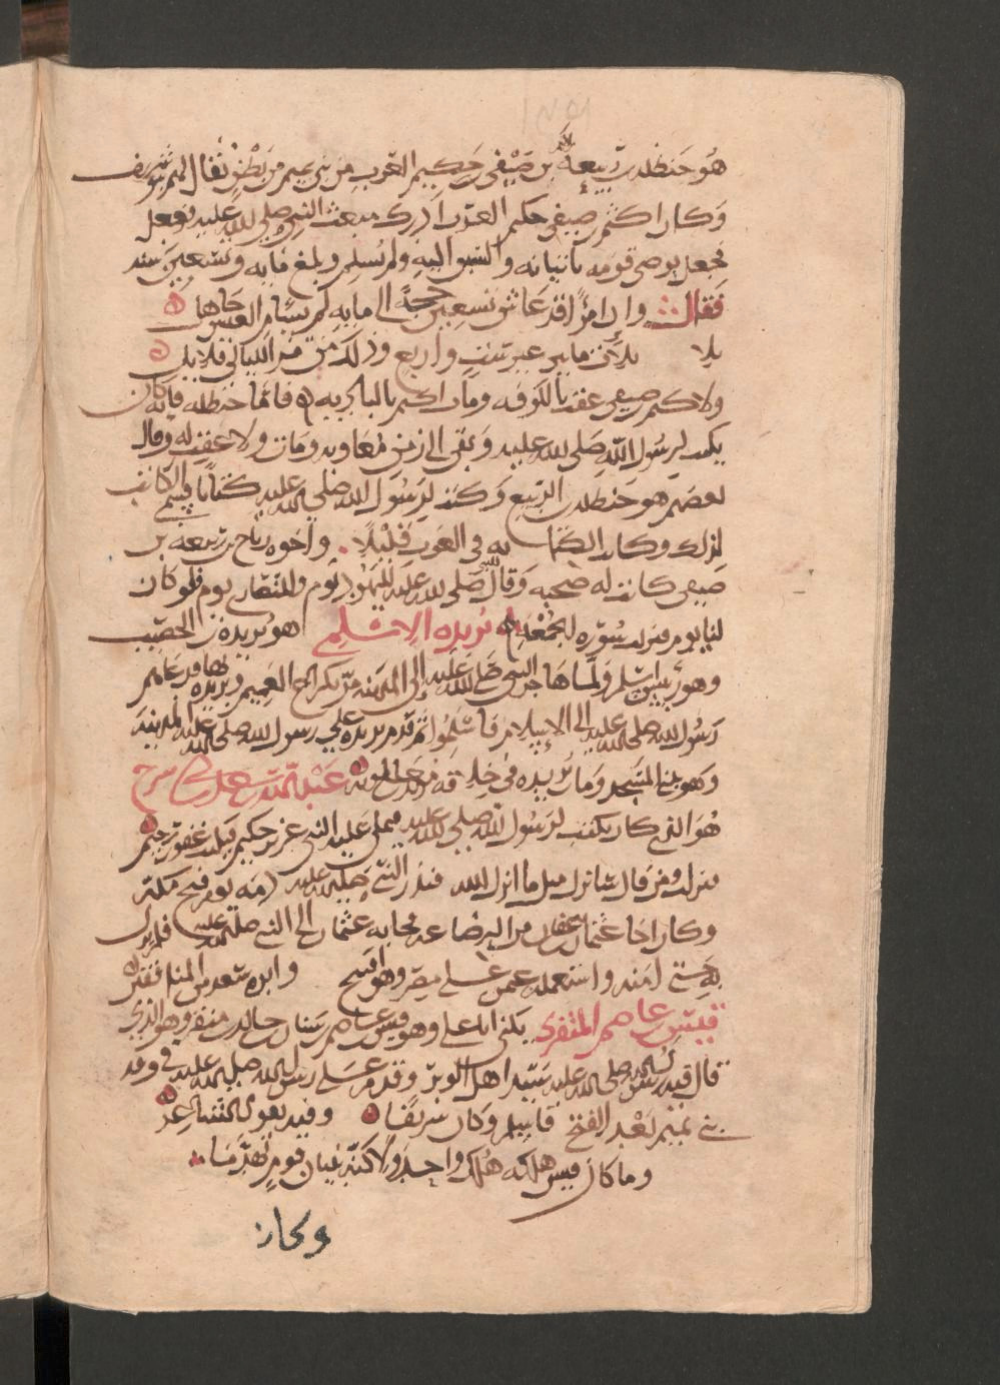 هو حنظلة بن ربيعة بن صيفي حكيم العرب من بني تميم من بطن يقال لهم شريف
وكان اكثم بن صيفي حكيم العرب ادرك مبعث النبي صلى الله عليه وجعل
فجعل يوصي قومه باتيانه والسبق اليه ولم يسلم وبلغ مايه وتسعين سنه
فقال وان امرأ قد عاش تسعين حجة الى مايه لم يسأم العيش جاهل
مايتين غير ست واربع وذلك من مر الليالي قلايل
ولاكثم بن صيفي عقب بالكوفه ومات اكثم بالباديه فاما حنظله فانه كان
يكتب لرسول الله صلى الله عليه وبقي الى زمن معاويه ومات ولا عقب له وقال
بعضهم هو حنظلة بن الربيع وكتب لرسول الله صلى الله عليه كتابا فسمي الكاتب
لذلك وكان الكتابه في العرب قليلا واخوه رياح بن ربيعه بن
صيفي كانت له صحبه وقال للنبي صلى الله عليه لليهود يوم وللنصارى يوم فلو كان
لنا يوم فنزلت سورة الجمعه بريده الاسلمي هو بريدة بن الحصيب
وهو رئيس اسلم ولما هاجر النبي صلى الله عليه الى المدينه مر بكراع الغميم وبريده بها فدعاهم
رسول الله صلى الله عليه الى الاسلام فاسلموا ثم قدم بريده على رسول الله صلى الله عليه المدينه
وهو يبني المسجد ومات بريده في خلافة يزيد بن معويه عبد الله بن سعد بن ابي سرح
هو الذي كان يكتب لرسول الله صلى الله عليه فيملي عليه النبي عزيز حكيم فيكتب غفور رحيم
فنزلت ومن قال سانزل مثل ما انزل الله فنذر النبي صلى الله عليه دمه يوم فتح مكة
وكان اخا عثمان بن عفان من الرضاعه فجا به عثمان الى النبي صلى الله عليه فلم يزل
به حتى امنه واستعمله عمن على مصر وهو افتتح
قيس بن عاصم المنقري يكنى ابا علي وهو قيس بن عاصم بن سنان بن خالد بن منقر وهو الذي
قال فيه رسول الله صلى الله عليه سيد اهل الوبر وقدم على رسول الله صلى الله عليه في وفد
بني تميم بعد الفتح فاسلم وكان شريفا وفيه يقول الشاعر
وما كان قيس هلكه هلك واحد ولاكنه بنيان قوم تهدما
وكان